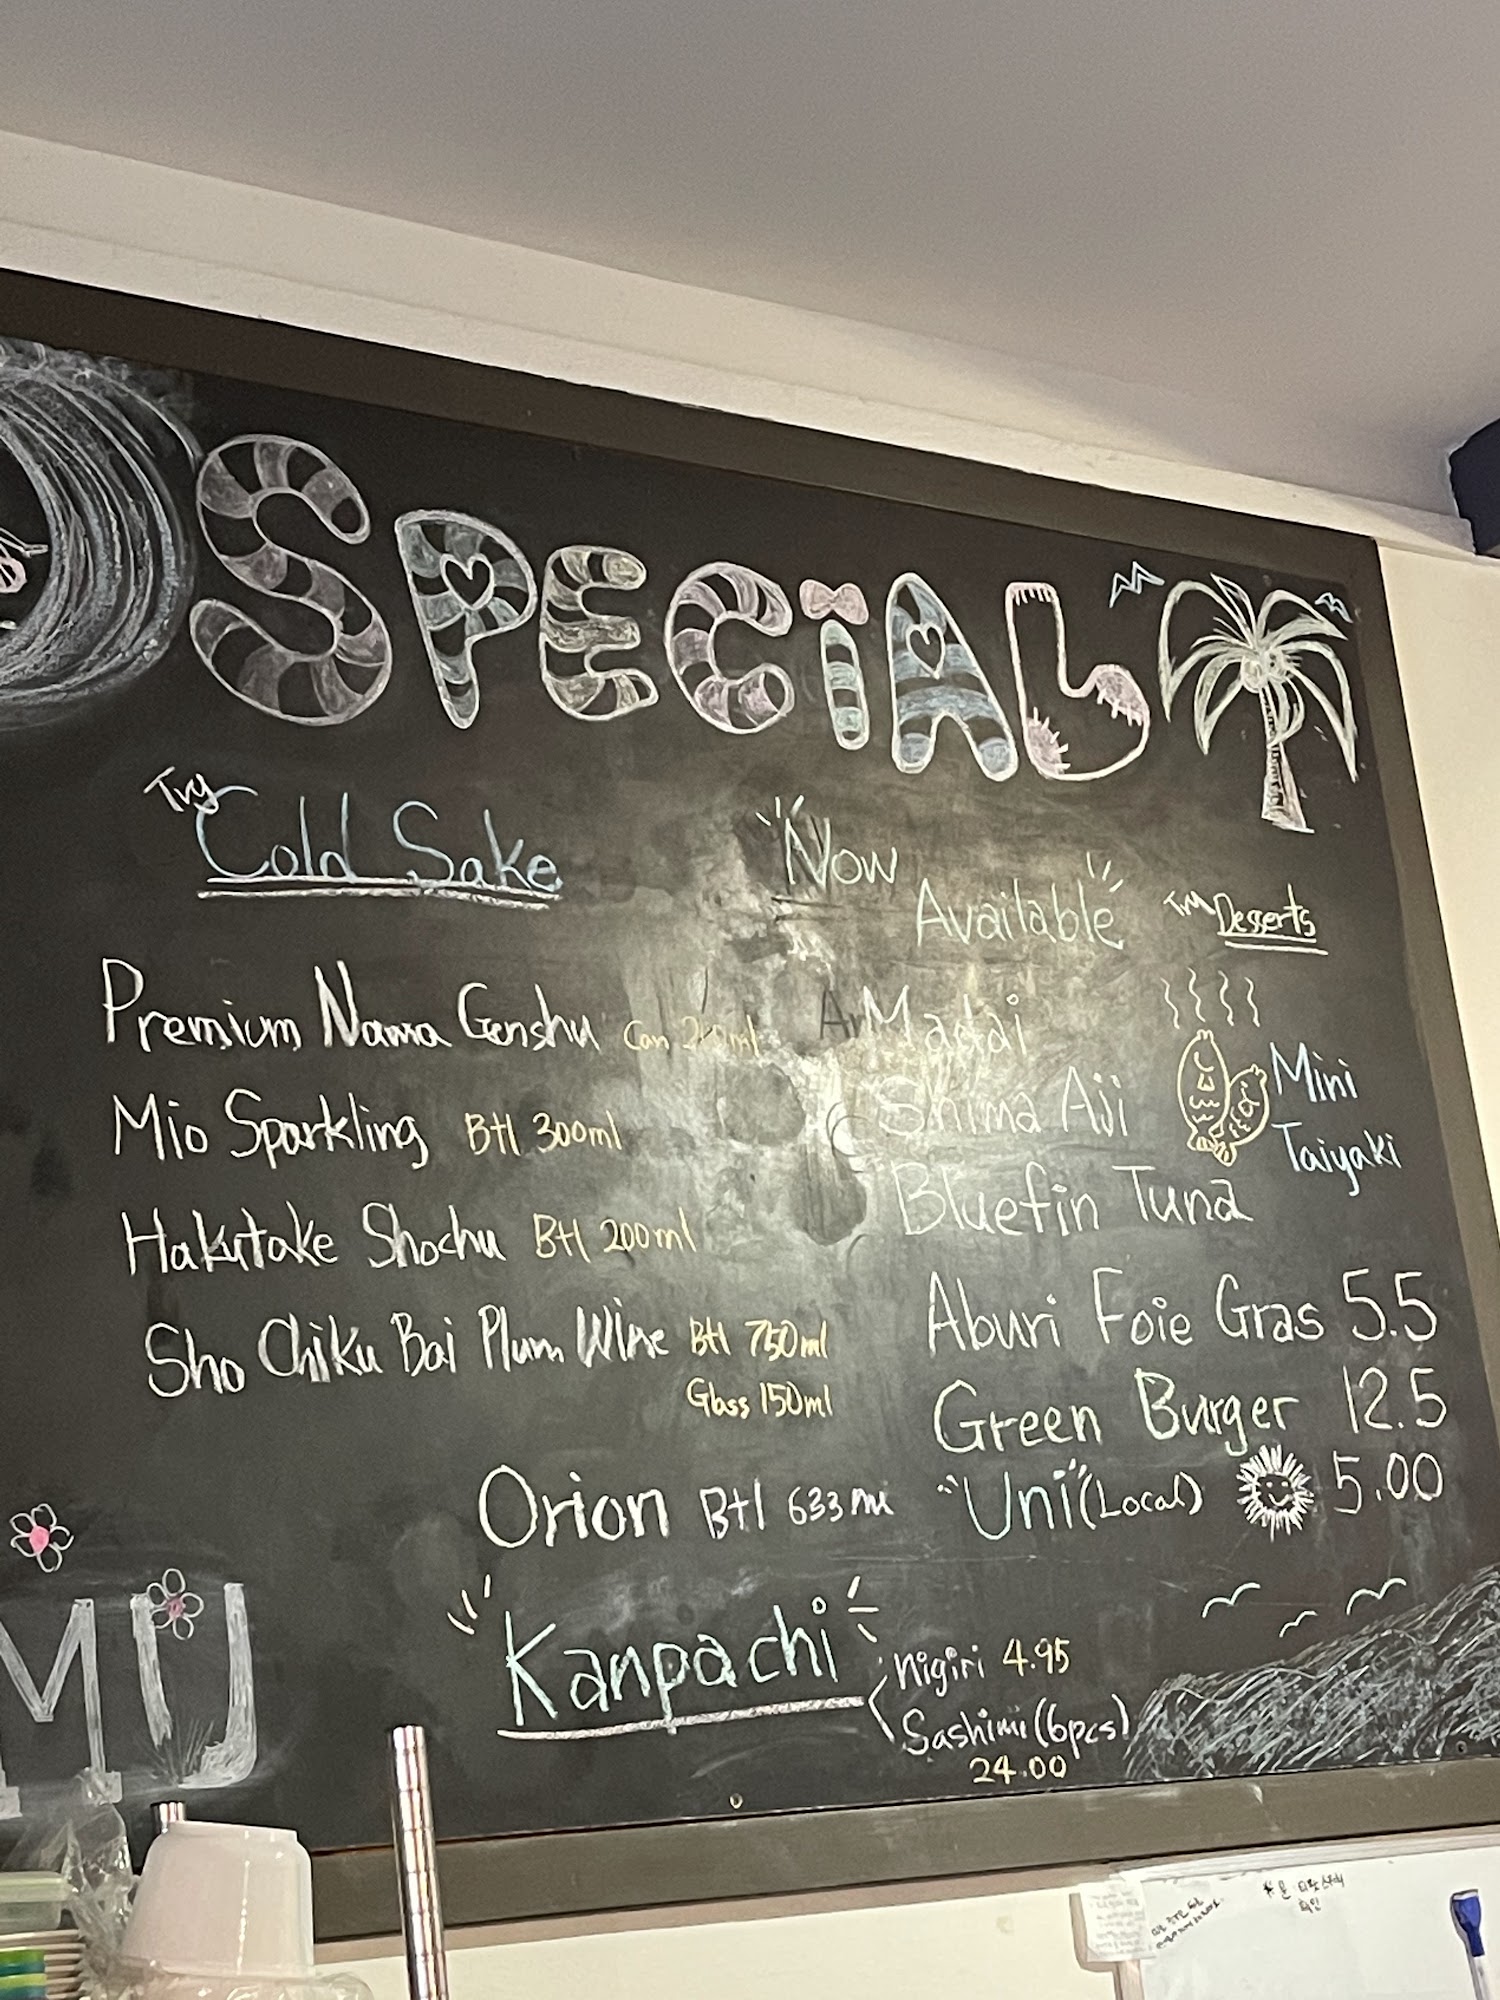 SPECIAL
Try
Cold Sake
Premium Nama Genshu Can
Mio Sparkling Btl 300ml
Hakutake Shochu Btl 200ml
Sho Chiku Bai Plum Wine Btl 750ml
Glass 150ml
Orion Btl 633ml
"Kanpachi"
Nigiri 4.95
Sashimi (6pcs)
24.00
"Now
Available"
Madai
Shima Aji
Bluefin Tuna
Aburi Foie Gras 5.5
Green Burger 12.5
"Uni" (Local) 5.00
Try Desserts
Mini
Taiyaki
MU